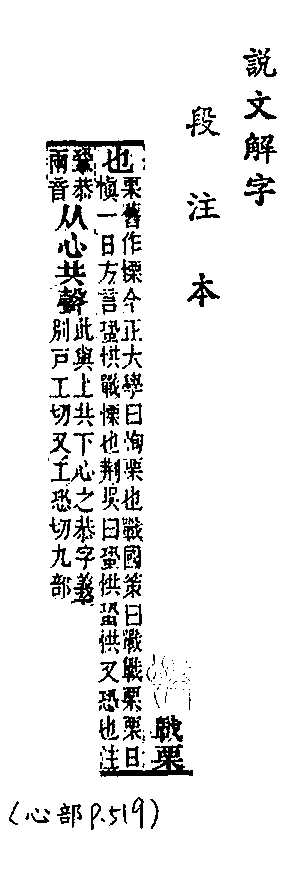 說文解字
段注本
戰栗
也栗舊作慄今正大學曰恂栗也戰國策曰戰戰栗栗日
慎一日方言蛩㤨戰慄也荆吳曰蛩㤨蛩㤨又恐也注
鞏恭
兩音
从心共聲
此與上共下心之恭字義
别戶工切又工恐切九部
(心部P.519)